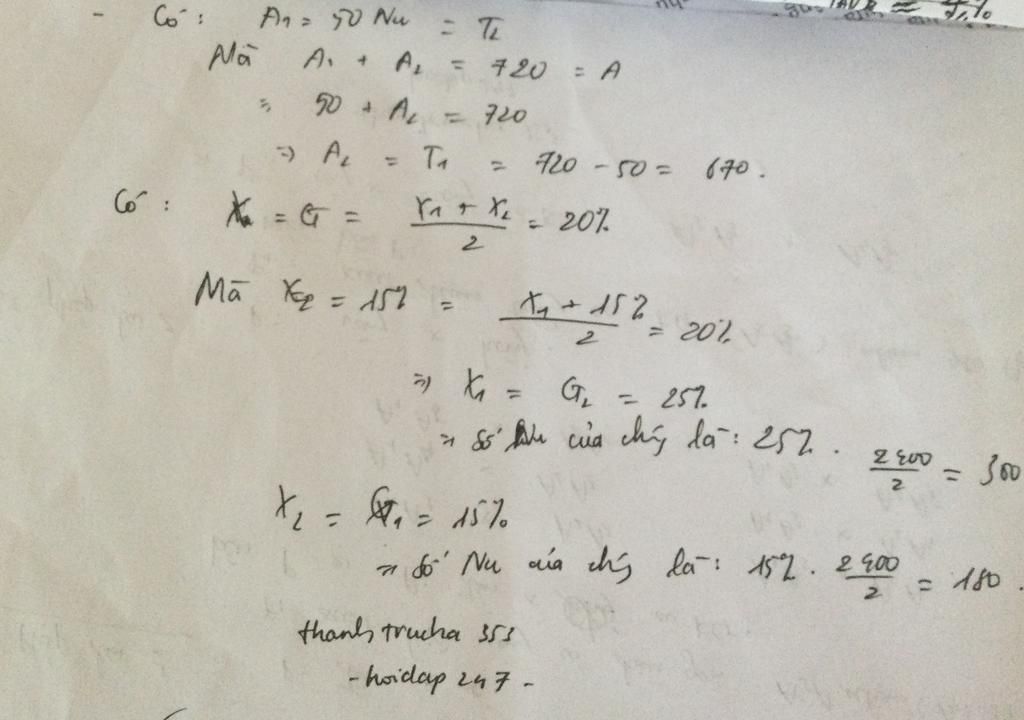 - Có: A1 = 50 Nu = T2
Mà A1 + A2 = 720 = A
=> 50 + A2 = 720
=> A2 = T1 = 720 - 50 = 670.
Có: X = G = (X1 + X2)/2 = 20%
Mà X2 = 15% = (X1 + 15%)/2 = 20%
=> X1 = G2 = 25%
=> số Nu của chúg là: 25% . 2400/2 = 300
X2 = G1 = 15%
=> số Nu của chúg là: 15% . 2400/2 = 180.
thanhtrucha353
- hoidap247 -